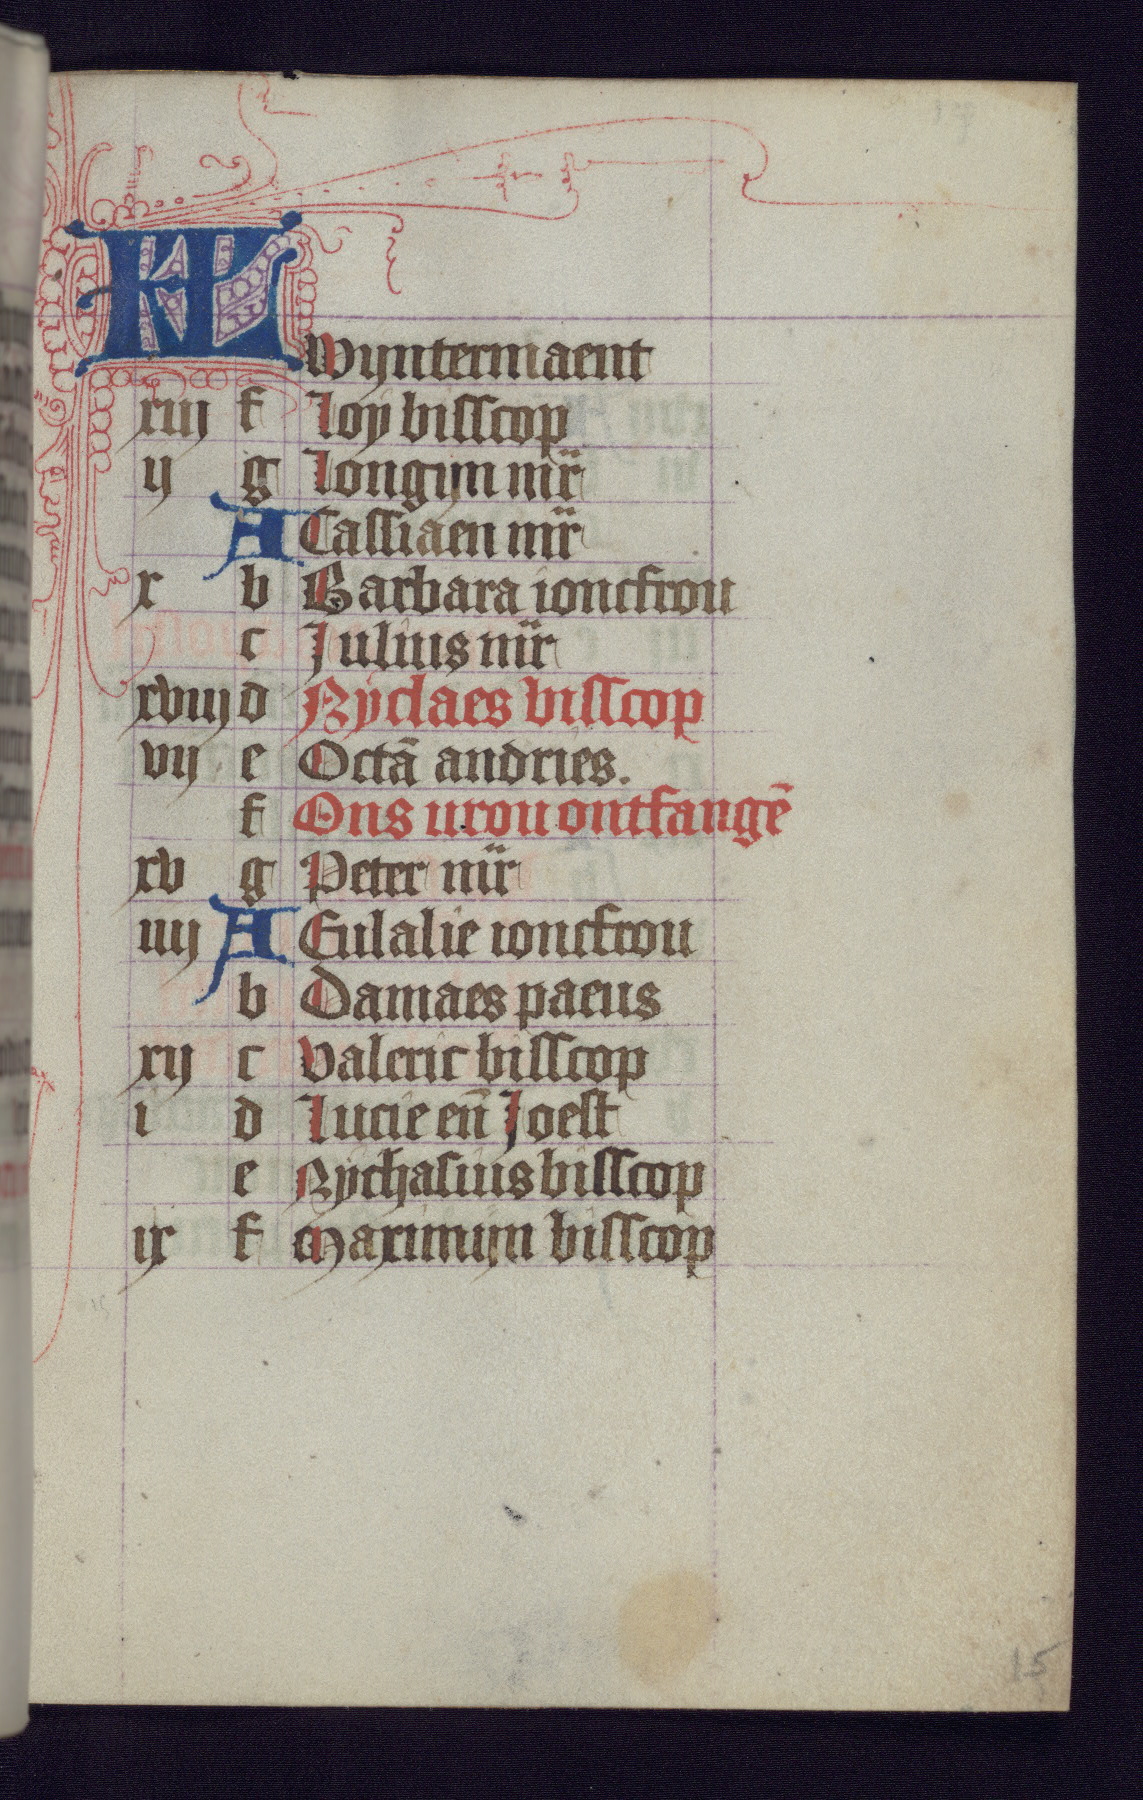 KL Wyntermaent
xiij f Loy bisscop
ij g Longijn mr̄
A Cassiaen mr̄
x b Barbara ioncfrou
c Julius mr̄
xviij d Nyclaes bisscop
vij e Octā andries.
f Ons urou ontfangē
xv g Peter mr̄
iiij A Eulalie ioncfrou
b Damaes paeus
xij c Valeric bisscop
i d Lucie en̄ Joest
e Nychasius bisscop
ix f Maximijn bisscop
15